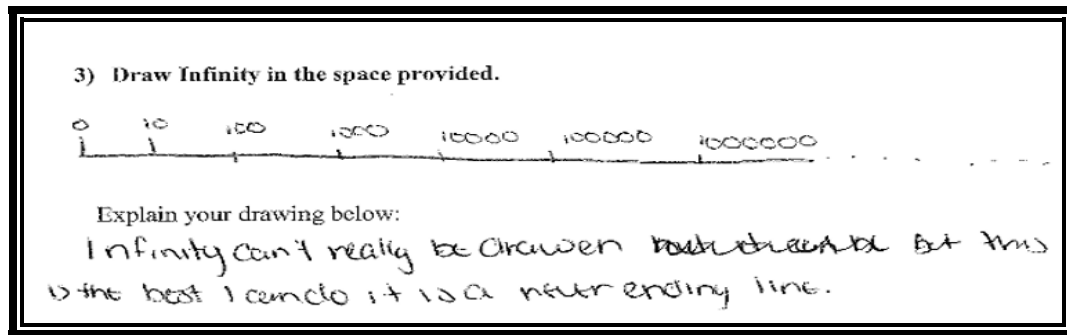 3) Draw Infinity in the space provided.
0 10 100 1000 10000 100000 1000000
Explain your drawing below:
Infinity can't really be drawen but this
is the best I can do it is a never ending line.